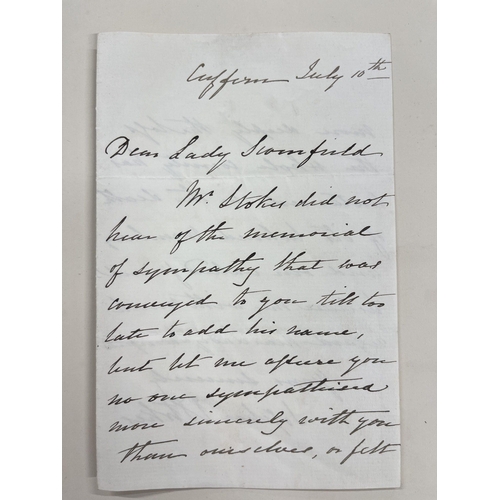 Cuffern July 10th
Dear Lady Scourfield
Mr Stokes did not
hear of the memorial
of sympathy that was
conveyed to you till too
late to add his name,
but let me assure you
no one sympathised
more sincerely with you
than ourselves, or felt